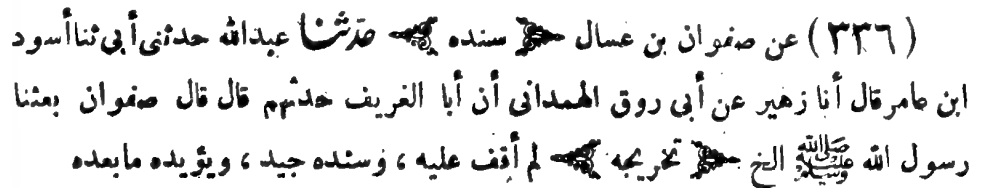 (٣٣٦) عن صفوان بن عسال ﴿ سنده ﴾ حدثنا عبدالله حدثنى أبى ثنا أسود
ابن عامر قال أنا زهير عن أبى روق الهمدانى أن أبا الغريف حدثهم قال قال صفوان بعثنا
رسول الله ﷺ الخ ﴿ تخريجه ﴾ لم أقف عليه ، وسنده جيد ، ويؤيده مابعده